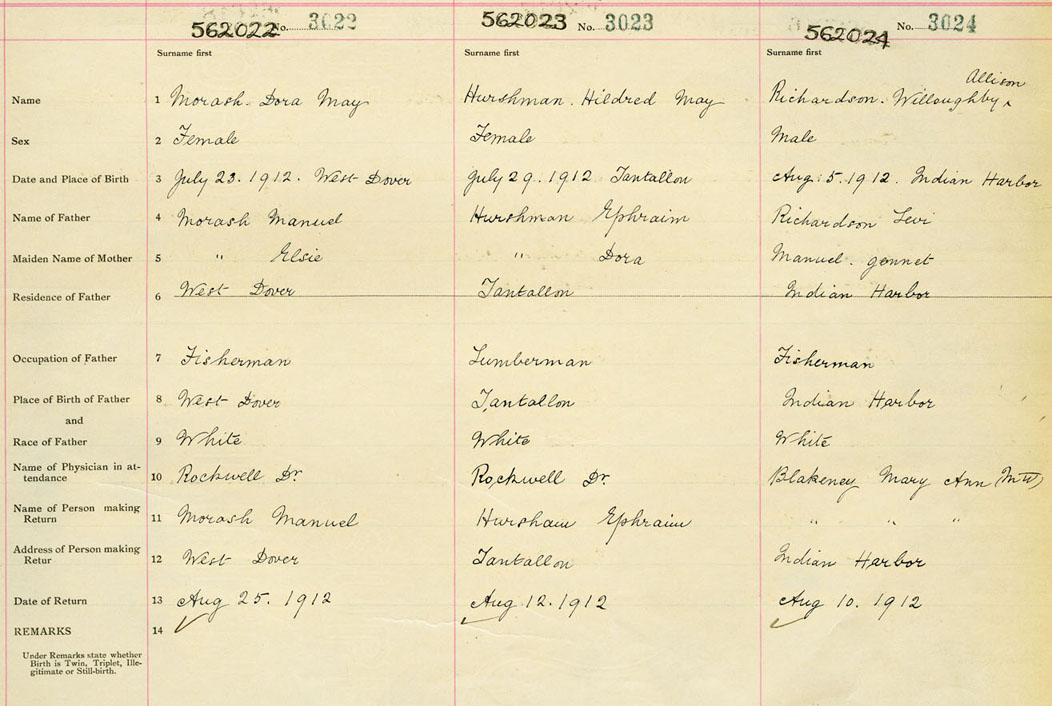 562022 No. 3022 562023 No. 3023 562024 No. 3024
Surname first Surname first Surname first
Allison
Name 1 Morash. Dora May Hurshman. Hildred May Richardson. Willoughby ^
Sex 2 Female Female Male
Date and Place of Birth 3 July 23. 1912. West Dover July 29. 1912 Tantallon Aug. 5. 1912. Indian Harbor
Name of Father 4 Morash Manuel Hurshman Ephraim Richardson Levi
Maiden Name of Mother 5 " Elsie " Dora Manuel. Jennet
Residence of Father 6 West Dover Tantallon Indian Harbor
Occupation of Father 7 Fisherman Lumberman Fisherman
Place of Birth of Father 8 West Dover Tantallon Indian Harbor
and
Race of Father 9 White White White
Name of Physician in at-
tendance 10 Rockwell Dr. Rockwell Dr. Blakeney Mary Ann
Name of Person making
Return 11 Morash Manuel Hursham Ephraim " " "
Address of Person making
Retur 12 West Dover Tantallon Indian Harbor
Date of Return 13 Aug 25. 1912 Aug 12. 1912 Aug 10. 1912
REMARKS 14
Under Remarks state whether
Birth is Twin, Triplet, Ille-
gitimate or Still-birth.